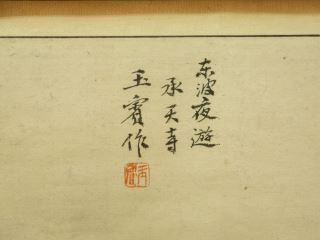 东波夜遊
承天寺
玉賓作